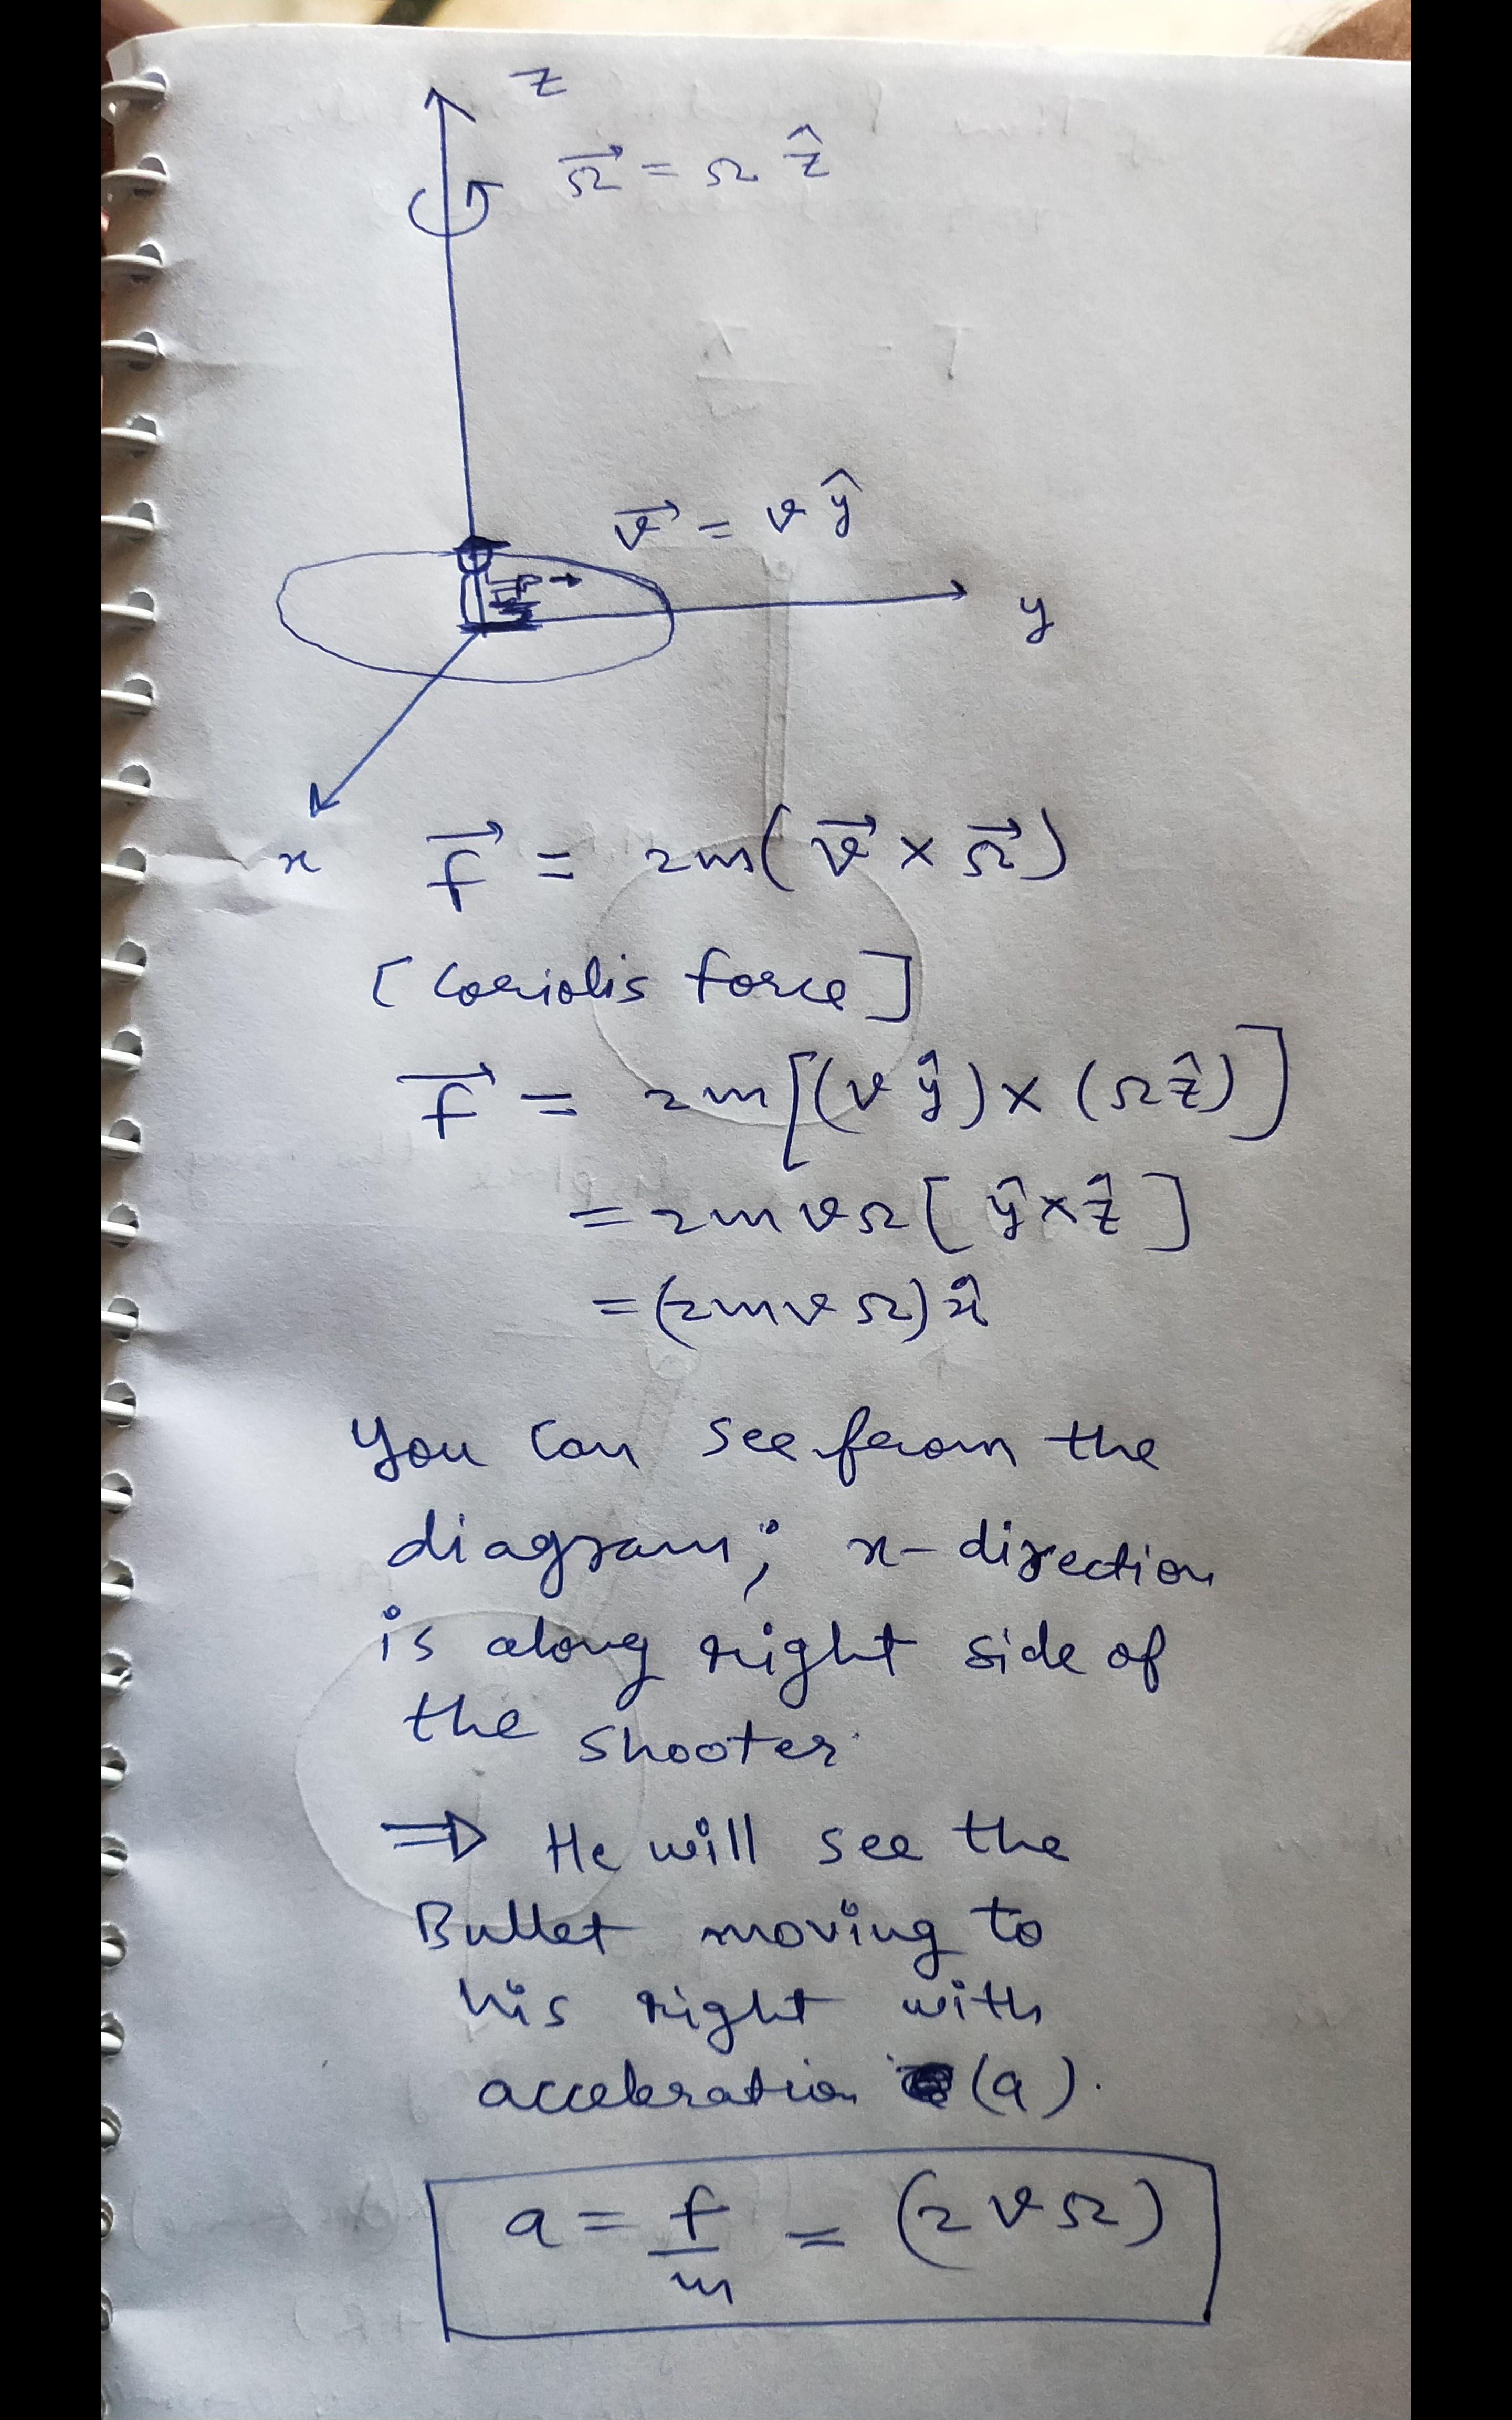 z
Ω⃗ = Ω ẑ
v⃗ = v ŷ
y
x
f⃗ = 2m(v⃗ × Ω⃗)
[Coriolis force]
f⃗ = 2m[(v ŷ) × (Ω ẑ)]
= 2mvΩ[ŷ × ẑ]
= (2mvΩ) x̂
You can see from the
diagram; x-direction
is along right side of
the shooter.
⇒ He will see the
Bullet moving to
his right with
acceleration (a).
a = f/m = (2vΩ)